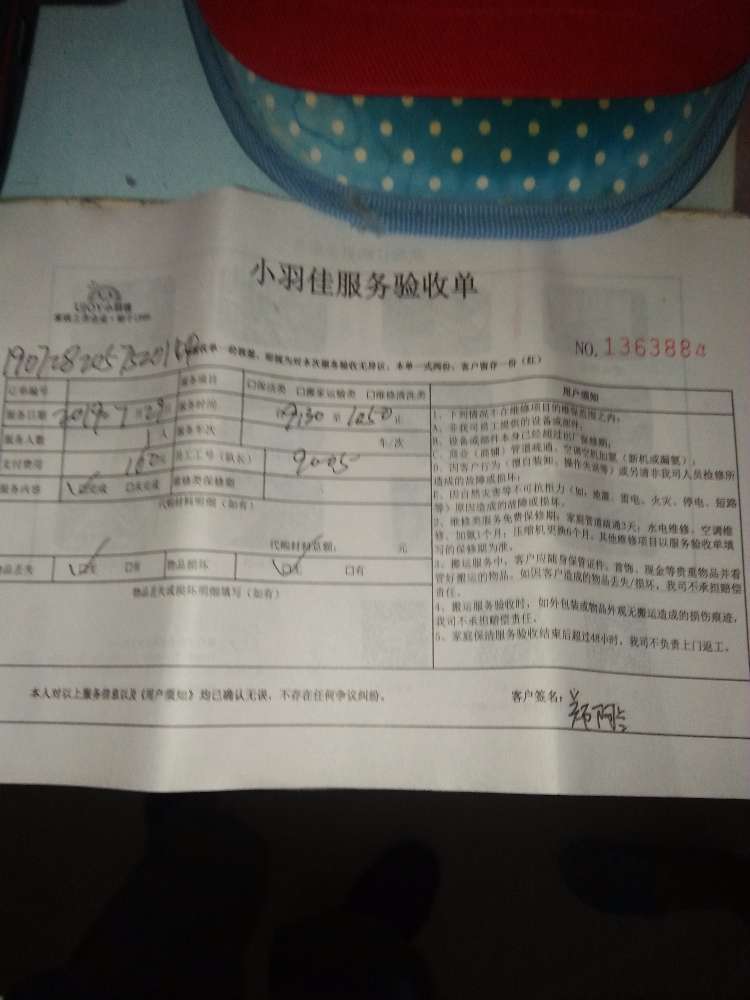 小羽佳服务验收单
NO. 1363884
收单一份数量，如视为对本次服务验收无异议，本单一式两份，客户留存一份（红）
订单编号 服务项目 口保洁类 口搬家运输类 口维修清洗类
服务日期 2019年7月29日 服务时间 9:30 至 1050 止
服务人数 1人 服务车次 车/次
支付费用 160 员工工号（队长） 9005
服务内容 口完成 口未完成 维修类保修期
代购材料明细（如有）
代购材料总额： 元
物品丢失 口无 口有 物品损坏 口无 口有
物品丢失或损坏明细填写（如有）
用户须知
1、下列情况不在维修项目的维保范围之内：
A、非我司员工提供的设备或部件；
B、设备或部件本身已经超过出厂保修期；
C、商业（商铺）管道疏通、空调空机加氟（新机或漏氟）；
D、因客户行为（擅自装卸、操作失误等）或另请非我司人员检修所
造成的故障或损坏。
E、因自然灾害等不可抗力（如：地震、雷电、火灾、停电、短路
等）原因造成的故障或损坏。
2、维修类服务免费保修期：家庭管道疏通3天；水电维修、空调维
修、加氟1个月；压缩机更换6个月。其他维修项目以服务验收单填
写的保修期为准。
3、搬运服务中，客户应随身保管证件、首饰、现金等贵重物品并看
管好搬运的物品。如因客户造成的物品丢失/损坏，我司不承担赔偿
责任。
4、搬运服务验收时，如外包装或物品外观无搬运造成的损伤痕迹，
我司不承担赔偿责任。
5、家庭保洁服务验收结束后超过48小时，我司不负责上门返工。
本人对以上服务信息以及《用户须知》均已确认无误，不存在任何争议纠纷。 客户签名：